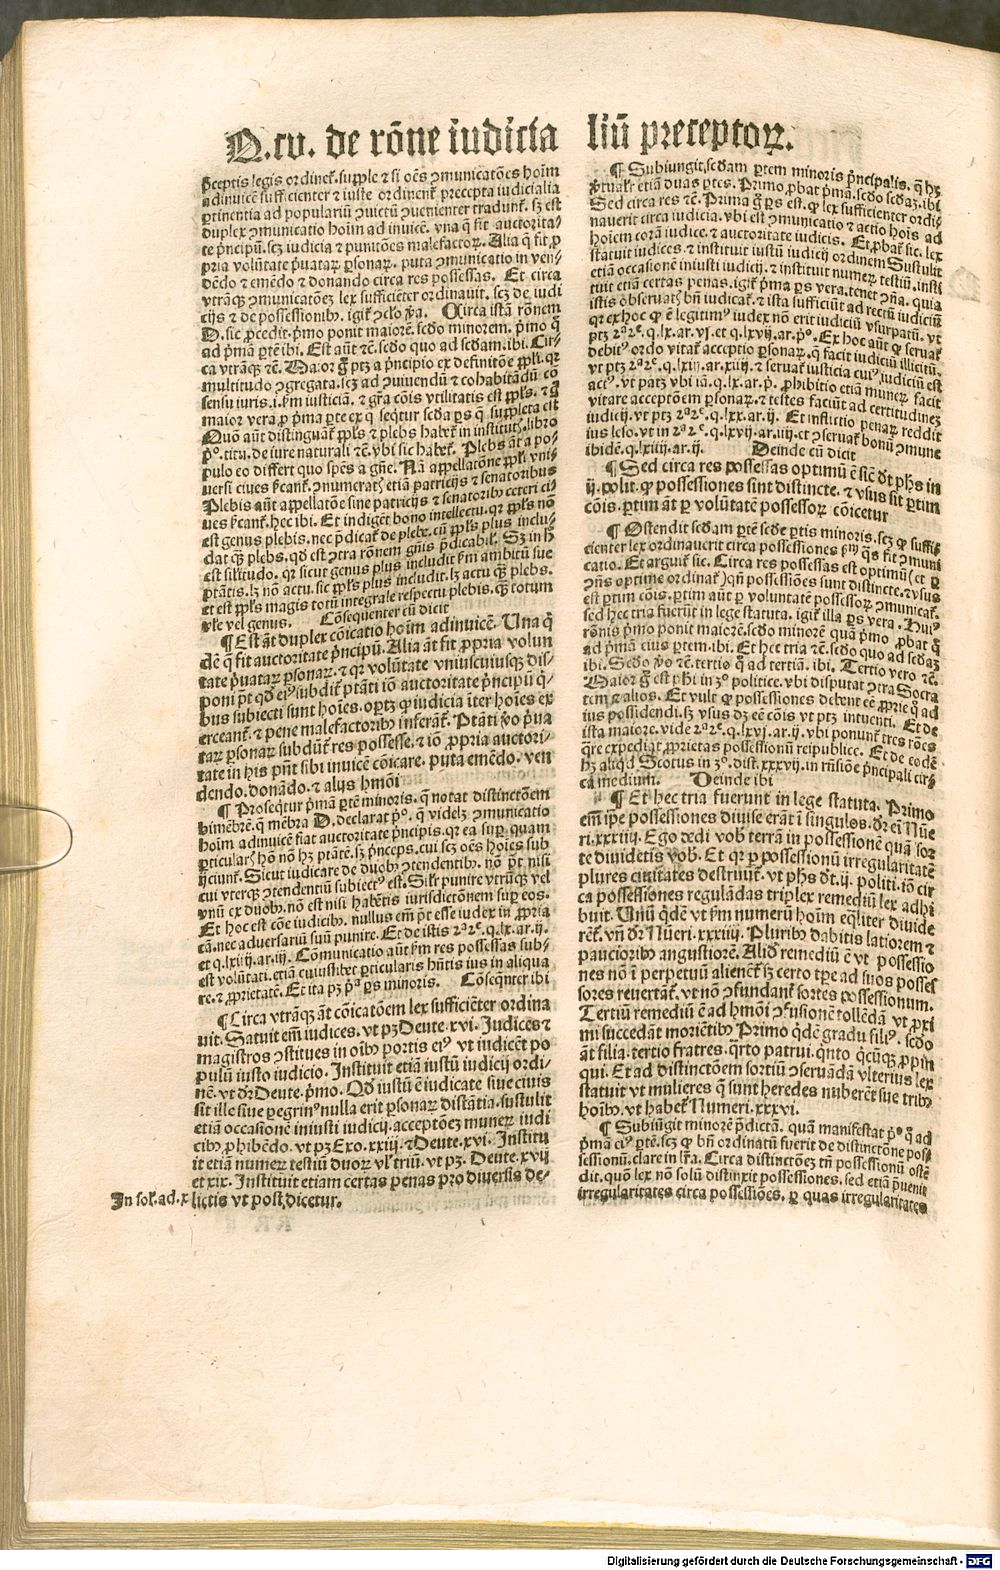 Q.cv. de rōne iudicia liū preceptoꝝ.
p̄ceptis legis ordinet᷑. supple ⁊ si oēs ꝯmunicatōes hoīm
adinuicē sufficienter ⁊ iuste ordinent᷑ precepta iudicialia
ꝑtinentia ad populariū ꝯuictū ꝯuenienter tradunt᷑. sꝫ est
duplex ꝯmunicatio hoīm ad inuicē. vna q̄ fit auctorita-
te p̄ncipū. scꝫ iudicia ⁊ punitōes malefactoꝝ. Alia q̄ fit ꝓ
pria volūtate p̄uataꝝ ꝑsonaꝝ. puta ꝯmunicatio in ven-
dēdo ⁊ emēdo ⁊ donando circa res possessas. Et circa
vtrāqꝫ ꝯmunicatōeꝫ lex sufficiēter ordinauit. scꝫ de iudi
cijs ⁊ de possessionibꝰ. igit᷑ ꝯclo ꝟa. Circa istā rōnem
D. sic ꝓcedit. p̄mo ponit maiorē. scd̄o minorem. p̄mo q̄
ad p̄mā ꝑtē ibi. Est aūt ⁊c̄. scd̄o quo ad scd̄am. ibi. Cir-
ca vtrāqꝫ ⁊c̄. Maior g̊ ptꝫ a p̄ncipio ex definitōe ppl̄i. qꝛ
multitudo ꝯgregata. scꝫ ad ꝯuiuendū ⁊ cohabitādū cō
sensu iuris. i. ẜm iusticiā. ⁊ gr̄a cōis vtilitatis est ppl̄s. ⁊ g̊
maior vera ꝓ p̄ma ꝑte ex q̊ seq̄tur scd̄a ꝑs q̄ suppleta est
Quō aūt distinguant᷑ ppl̄s ⁊ plebs habet᷑ in institut̄. libro
p̄º. titu. de iure naturali ⁊c̄. vbi sic habet᷑. Plebs āt a po-
pulo eo differt quo spēs a gn̄e. Nā appellatōne ppl̄i vni-
uersi ciues ſcant᷑. ꝯnumeratꝭ etiā patricijs ⁊ senatoribus
Plebis aūt appellatōe sine patricijs ⁊ senatoribꝰ ceteri ci-
ues ſcant᷑. hec ibi. Et indiget bono intellectu. qꝛ ppl̄s nō
est genus plebis. nec p̄dicat᷑ de plebe. cū ppl̄s plus inclu-
dat qꝫ plebs. qd̄ est ꝯtra rōnem gn̄is p̄dicabil̄. Sꝫ in h̊
est sil̄itudo. qꝛ sicut genus plus includit ẜm ambitū sue
ptātis. lꝫ nō actu. sic ppl̄s plus includit. lꝫ actu qꝫ plebs.
et est ppl̄s magis totū integrale respectu plebis. qꝫ totum
vl̄e vel genus. Cōsequenter cū dicit
¶ Est āt duplex cōicatio hoīm adinuicē. Una q̄
dē q̄ fit auctoritate p̄ncipū. Alia āt fit ꝓpria volun
tate p̄uataꝝ ꝑsonaꝝ. ⁊ qꝛ volūtate vniuscuiusqꝫ dis-
poni pn̄t q̄ eiꝰ subdūt᷑ ptāti iō auctoritate p̄ncipū q̄-
bus subiecti sunt hoīes. oportꝫ ꝙ iudicia īter hoīes ex
erceant᷑. ⁊ pene malefactoribꝰ inferāt᷑. Ptāti ꝟo p̄ua
taꝝ ꝑsonaꝝ subdūt᷑ res possesse. ⁊ iō ꝓpria auctori-
tate in his pn̄t sibi inuicē cōicare. puta emēdo. ven
dendo. donādo. ⁊ alijs hmōi
¶ Proseq̄tur p̄mā ꝑtē minoris. q̄ notat distinctōem
bimēbrē. q̄ mēbra D. declarat p̄º. q̄ videlꝫ ꝯmunicatio
hoīm adinuicē fiat auctoritate p̄ncipis. qꝛ ea suꝑ quam
ꝑticularꝭ hō nō hꝫ ptātē. sꝫ p̄nceps. cui scꝫ oēs hoīes sub
ijciunt᷑. Sicut iudicare de duobꝰ ꝯtendentibꝰ. nō pōt nisi
cui vterqꝫ ꝯtendentiū subiectꝰ est. Sil̄r punire vtrūqꝫ vel
vnū ex duobꝰ. nō est nisi habētis iurisdictōnem suꝑ eos.
Et hoc est cōe iudicibꝰ. nullus em̄ pōt esse iudex in ꝓpria
cā. nec aduersariū suū punire. Et de istis 2ª2ᵉ. q. lx. ar. ij.
et q. lxiiij. ar. iij. Cōmunicatio aūt ẜm res possessas sub-
est volūtati. etiā cuiuslibet ꝑticularis hn̄tis ius in aliqua
re. ⁊ ꝓprietatē. Et ita pꝫ p̄ª ꝑs minoris. Cōseq̄nter ibi
¶ Circa vtrāqꝫ āt cōicatōem lex sufficiēter ordina
uit. Satuit em̄ iudices. vt pꝫ Deute. xvi. Iudices ⁊
magistros ꝯstitues in oībꝰ portis eiꝰ vt iudicēt po
pulū iusto iudicio. Instituit etiā iustū iudicij ordi-
nē. vt d̄r Deute. p̄mo. Qd̄ iustū ē iudicate siue ciuis
sit ille siue ꝑegrinꝰ nulla erit ꝑsonaꝝ distātia. sustulit
etiā occasionē iniusti iudicij. acceptōeꝫ muneꝝ iudi
cibꝰ ꝓhibēdo. vt pꝫ Exo. xxiij. ⁊ Deute. xvi. Institu
it etiā numeꝝ testiū duoꝝ vl̄ triū. vt pꝫ. Deute. xvij
et xix. Instituit etiam certas penas pro diuersis de-
In sol̄. ad. x lictis vt post dicetur.
¶ Subiungit scd̄am ꝑtem minoris p̄ncipalis. q̄ hꝫ
ꝟtualr̄ etiā duas ꝑtes. Primo ꝓbat p̄mā. scd̄o scd̄aꝫ. ibi
Sed circa res ⁊c̄. Prima g̊ ꝑs est. ꝙ lex sufficienter ordi-
nauerit circa iudicia. vbi est ꝯmunicatio ⁊ actio hoīs ad
hoīem corā iudice. ⁊ auctoritate iudicis. Et ꝓbat᷑ sic. lex
statuit iudices. ⁊ instituit iustū iudicij ordinem Sustulit
etiā occasionē iniusti iudicij. ⁊ instituit numeꝝ testiū. insti
tuit etiā certas penas. igit᷑ p̄ma ꝑs vera. tenet ꝯn̄a. quia
istis obseruatꝭ bn̄ iudicat᷑. ⁊ ista sufficiūt ad rectū iudiciū
qꝛ ex hoc ꝙ ē legitimꝰ iudex nō erit iudiciū vsurpatū. vt
ptꝫ 2ª2ᵉ. q. lx. ar. vi. et q. lxvij. ar. p̄º. Ex hoc aūt ꝙ seruat᷑
debitꝰ ordo vitat᷑ acceptio ꝑsonaꝝ. q̄ facit iudiciū illicitū.
vt ptꝫ 2ª2ᵉ. q. lxiij. ar. iiij. ⁊ seruat᷑ iusticia cuiꝰ iudiciū est
actꝰ. vt patꝫ vbi īā. q. lx. ar. p̄. ꝓhibitio etiā muneꝝ facit
vitare acceptōem ꝑsonaꝝ. ⁊ testes faciūt ad certitudineꝫ
iudicij. vt ptꝫ 2ª2ᵉ. q. lxx. ar. ij. Et inflictio penaꝝ reddit
ius leso. vt in 2ª2ᵉ. q. lxvij. ar. iiij. et ꝯseruat᷑ bonū ꝯmune
ibidē. q. lxiiij. ar. ij. Deinde cū dicit
¶ Sed circa res possessas optimū ē sic̄ d̄t phs in
ij. polit. ꝙ possessiones sint distincte. ⁊ vsus sit ꝑtim
cōis. ꝑtim āt ꝑ volūtatē possessoꝝ cōicetur
¶ Ostendit scd̄am ꝑtē scd̄e ꝑtis minoris. scꝫ ꝙ suffi-
cienter lex ordinauerit circa possessiones ẜm q̄s fit ꝯmuni
catio. Et arguit᷑ sic. Circa res possessas est optimū (et ꝑ
ꝯn̄s optime ordinat᷑) qn̄ possessiōes sunt distincte. ⁊ vsus
est ꝑtim cōis. ꝑtim aūt ꝑ voluntatē possessoꝝ ꝯmunicat᷑.
sed hec tria fuerūt in lege statuta. igit᷑ illa ꝑs vera. Huiꝰ
rōnis p̄mo ponit maiorē. scd̄o minorē quā p̄mo ꝓbat q̊
ad p̄mā eius ꝑtem. ibi. Et hec tria ⁊c̄. scd̄o quo ad scd̄aꝫ
ibi. Scd̄o ꝟo ⁊c̄. tertio q̊ ad tertiā. ibi. Tertio vero ⁊c̄.
Maior g̊ est phi in 3º politice. vbi disputat ꝯtra Socra
tem ⁊ alios. Et vult ꝙ possessiones debent eē ꝓprie q̊ ad
ius possidendi. sꝫ vsus dꝫ eē cōis vt ptꝫ intuenti. Et de
ista maiore. vide 2ª2ᵉ. q. lxvi. ar. ij. vbi ponunt᷑ tres rōes
q̄re expediat ꝓprietas possessionū reipublice. Et de eodē
hꝫ aliqd̄ Scotus in 3º. dist. xxxvij. in rn̄siōe p̄ncipali cir-
ca medium. Deinde ibi
¶ Et hec tria fuerunt in lege statuta. Primo
em̄ ip̄e possessiones diuise erāt ī singulos. d̄r ei Nūe
ri. xxxiij. Ego dedi vob̄ terrā in possessionē quā sor
te diuidetis vob̄. Et qꝛ ꝑ possessionū irregularitatē
plures ciuitates destruūt᷑. vt phs d̄t. ij. politi. iō cir
ca possessiones reguladas triplex remediū lex adhi
buit. Unū qd̄ē vt ẜm numerū hoīm eq̄liter diuide
rēt᷑. vn̄ d̄r Nūeri. xxxiij. Pluribꝰ dabitis latiorem ⁊
paucioribꝰ angustiorē. Aliđ remediū ē vt possessio
nes nō ī perpetuū alienēt᷑. sꝫ certo tp̄e ad suos posses
sores reuertāt᷑. vt nō ꝯfundant᷑ sortes possessionum.
Tertiū remediū ē ad hmōi ꝯfusionē tollēdā vt ꝓxi
mi succedāt moriētibꝰ Primo qd̄ē gradu filiꝰ. scd̄o
āt filia. tertio fratres. q̄rto patrui. q̄nto q̄cūqꝫ ꝓpin
qui. Et ad distinctōem sortiū ꝯseruādā vlterius lex
statuit vt mulieres q̄ sunt heredes nuberēt sue tribꝰ
hoībꝰ. vt habet᷑ Numeri. xxxvi.
¶ Subiūgit minorē p̄dictā. quā manifestat p̄º q̊ ad
p̄mā eiꝰ ꝑtē. scꝫ ꝙ bn̄ ordinatū fuerit de distinctōne pos-
sessionū. clare in lr̄a. Circa distinctōeꝫ tn̄ possessionū ostē
dit. quō lex nō solū distinxit possessiones. sed etiā p̄uenit
irregularitates circa possessiōes. ꝑ quas irregularitates
Digitalisierung gefördert durch die Deutsche Forschungsgemeinschaft - DFG